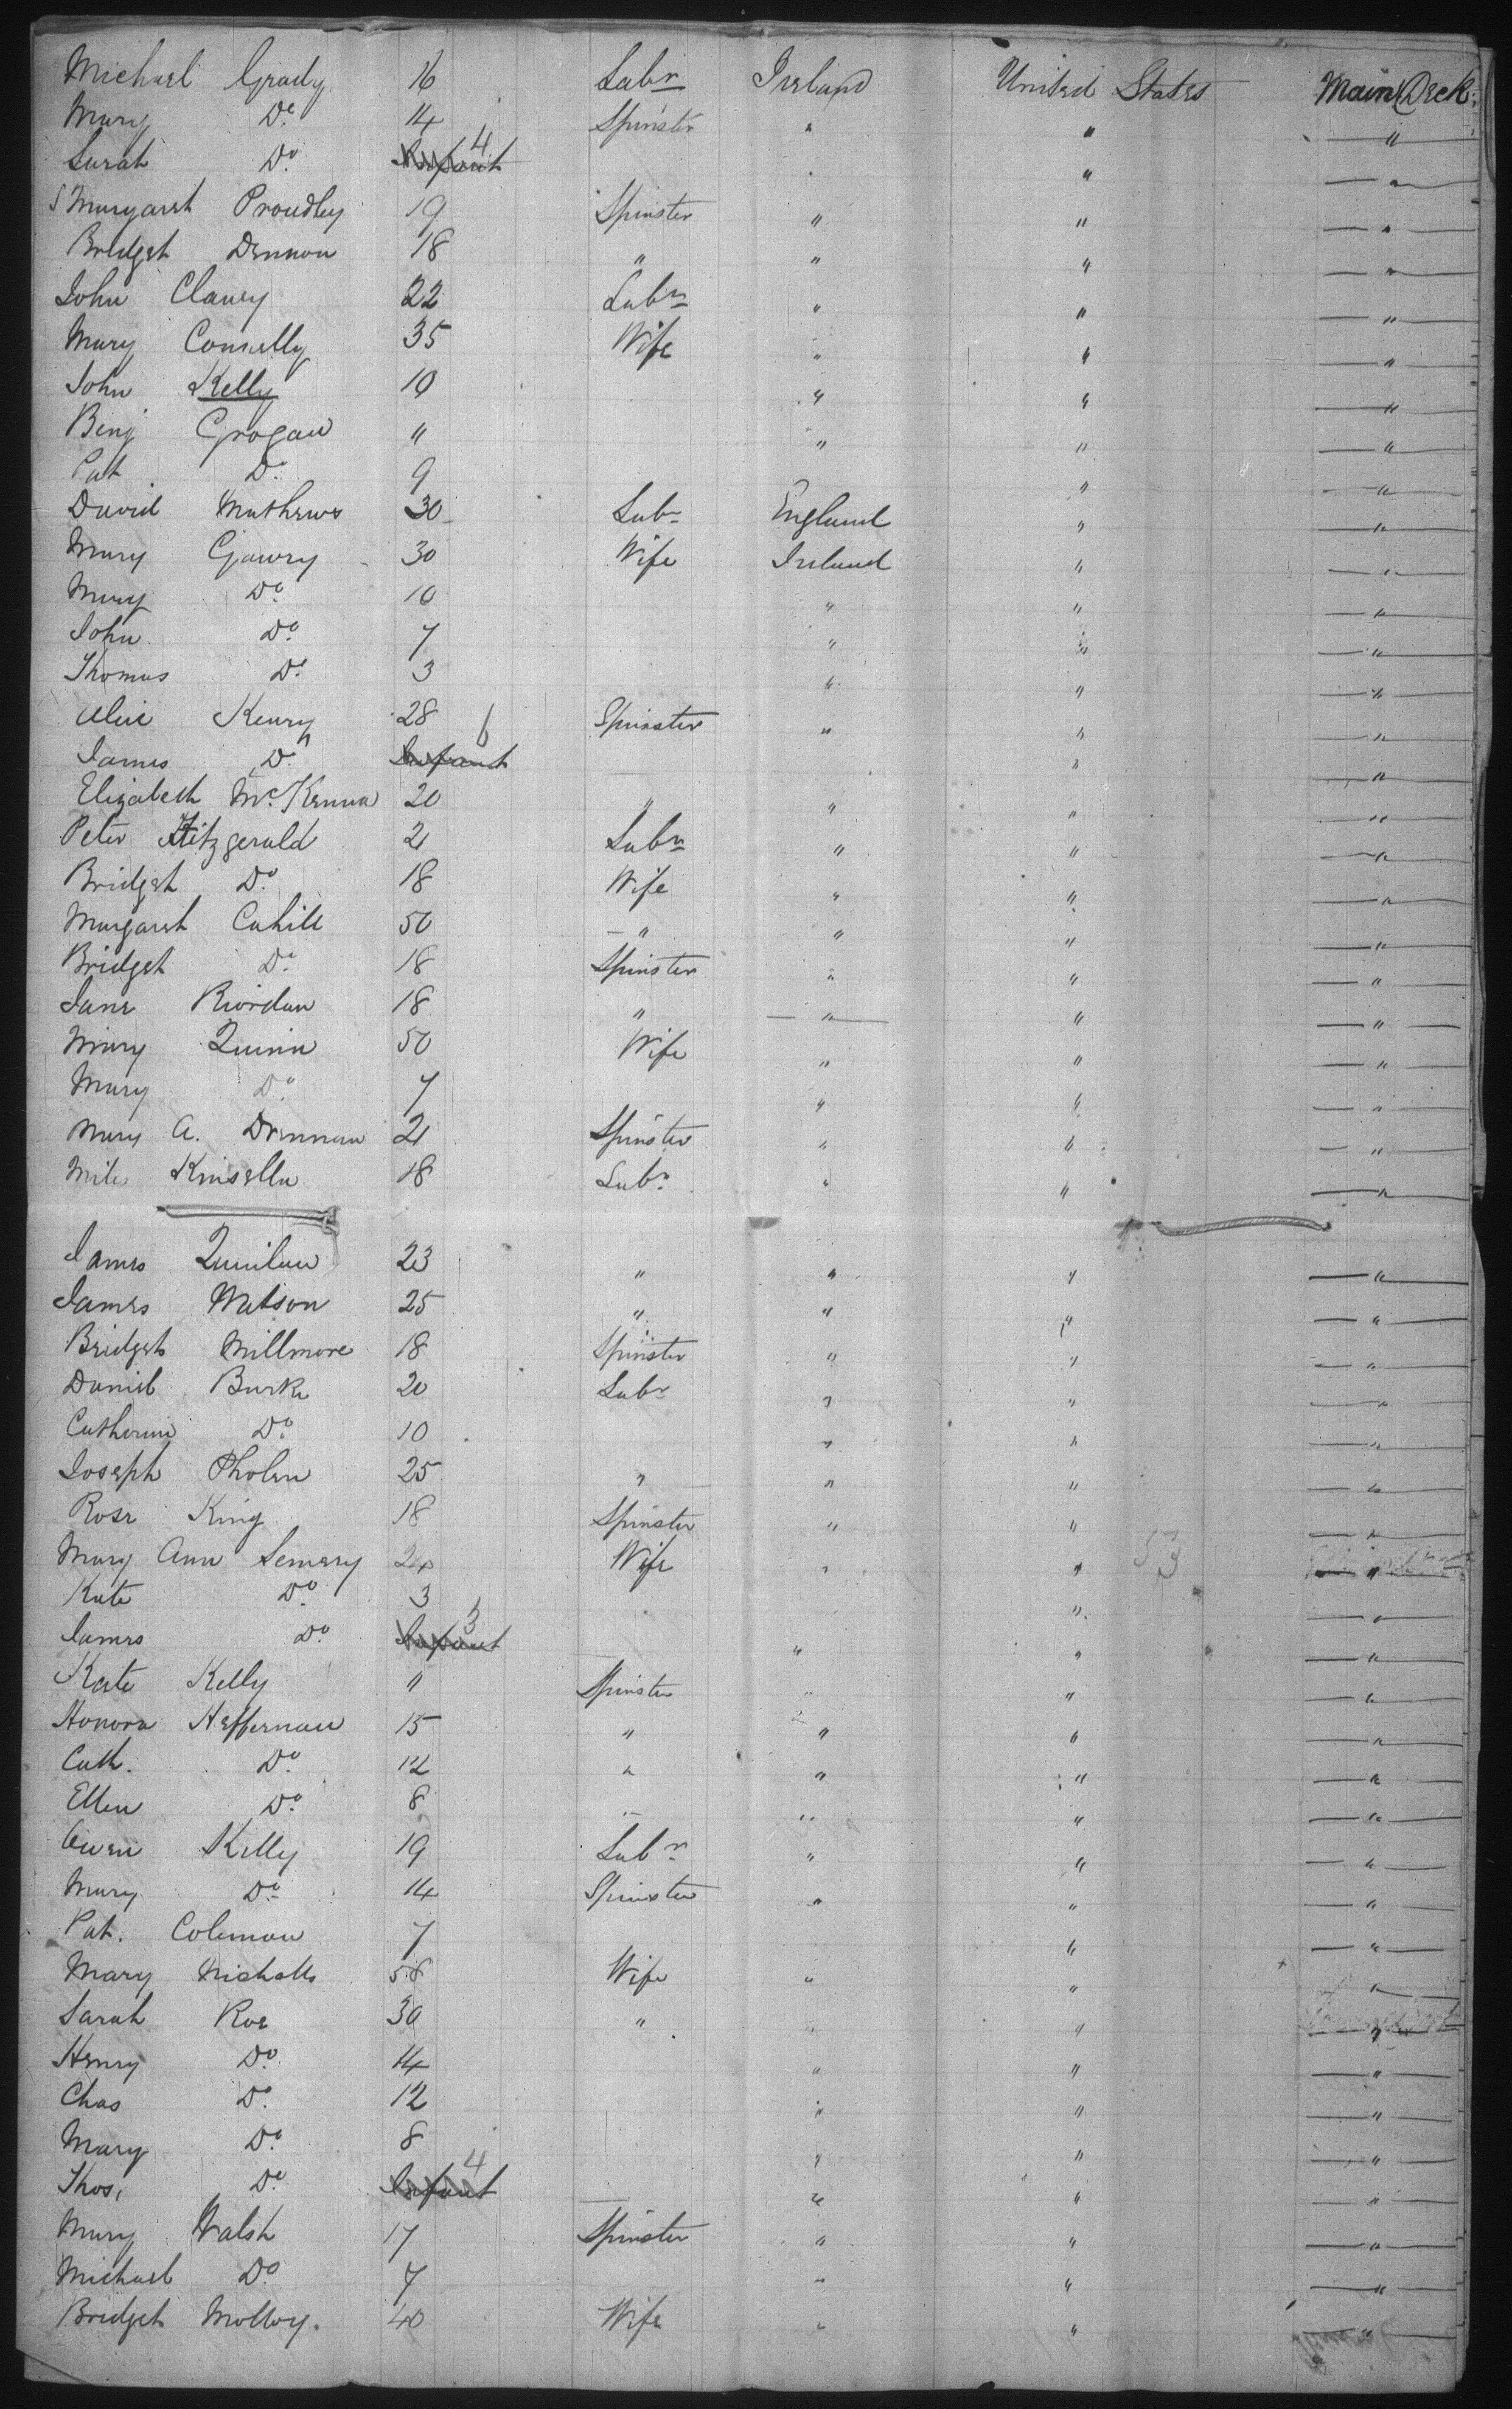 Michael Grady 16 Labr Ireland United States Main Deck
Mary Do 14 Spinster " " "
Sarah Do Infant 4 " " "
Margaret Proudley 19 Spinster " " "
Bridget Dennon 18 " " " "
John Clancy 22 Labr " " "
Mary Connelly 35 Wife " " "
John Kelly 10 " " "
Benj Grogan " " " "
Pat Do 9 " "
David Mathews 30 Labr England " "
Mary Gawry 30 Wife Ireland " "
Mary Do 10 " " "
John Do 7 " " "
Thomas Do 3 " " "
Alice Kenry 28 Spinster " " "
James Do Infant 6 " "
Elizabeth McKenna 20 " " " "
Peter Fitzgerald 21 Labr " " "
Bridget Do 18 Wife " " "
Margaret Cahill 50 " " " "
Bridget Do 18 Spinster " " "
Jane Riordan 18 " " " "
Mary Quinn 50 Wife " " "
Mary Do 7 " " "
Mary A. Drennan 21 Spinster " " "
Mile Kinsella 18 Labr " " "
James Quinlan 23 " " " "
James Watson 25 " " " "
Bridget Millmore 18 Spinster " " "
Daniel Burke 20 Labr " " "
Catherine Do 10 " " "
Joseph Pholen 25 " " " "
Rose King 18 Spinster " " "
Mary Ann Lemery 24 Wife " " 53 "
Kate Do 3 " "
James Do Infant 3 " " "
Kate Kelly " Spinster " " "
Honora Heffernan 15 " " " "
Cath. Do 12 " " " "
Ellen Do 8 " " " "
Owen Kelly 19 Labr " " "
Mary Do 14 Spinster " " "
Pat. Coleman 7 " "
Mary Nicholls 58 Wife " " "
Sarah Roe 30 " " " "
Henry Do 14 " " "
Chas Do 12 " " "
Mary Do 8 " " "
Thos. Do Infant 4 " " "
Mary Walsh 17 Spinster " " "
Michael Do 7 " " "
Bridget Molloy. 40 Wife " " "